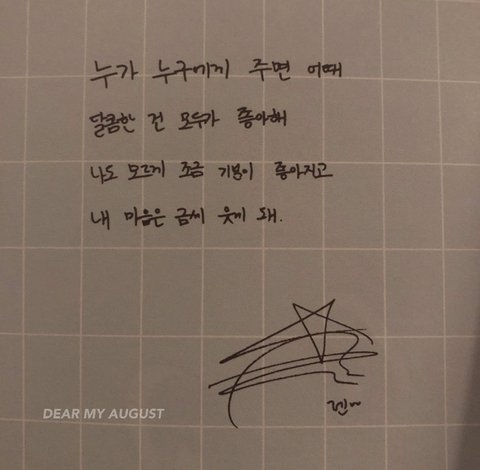 누가 누구에게 주면 어때
달콤한 건 모두가 좋아해
나도 모르게 조금 기분이 좋아지고
내 마음은 금세 웃게 돼.
렌~
DEAR MY AUGUST